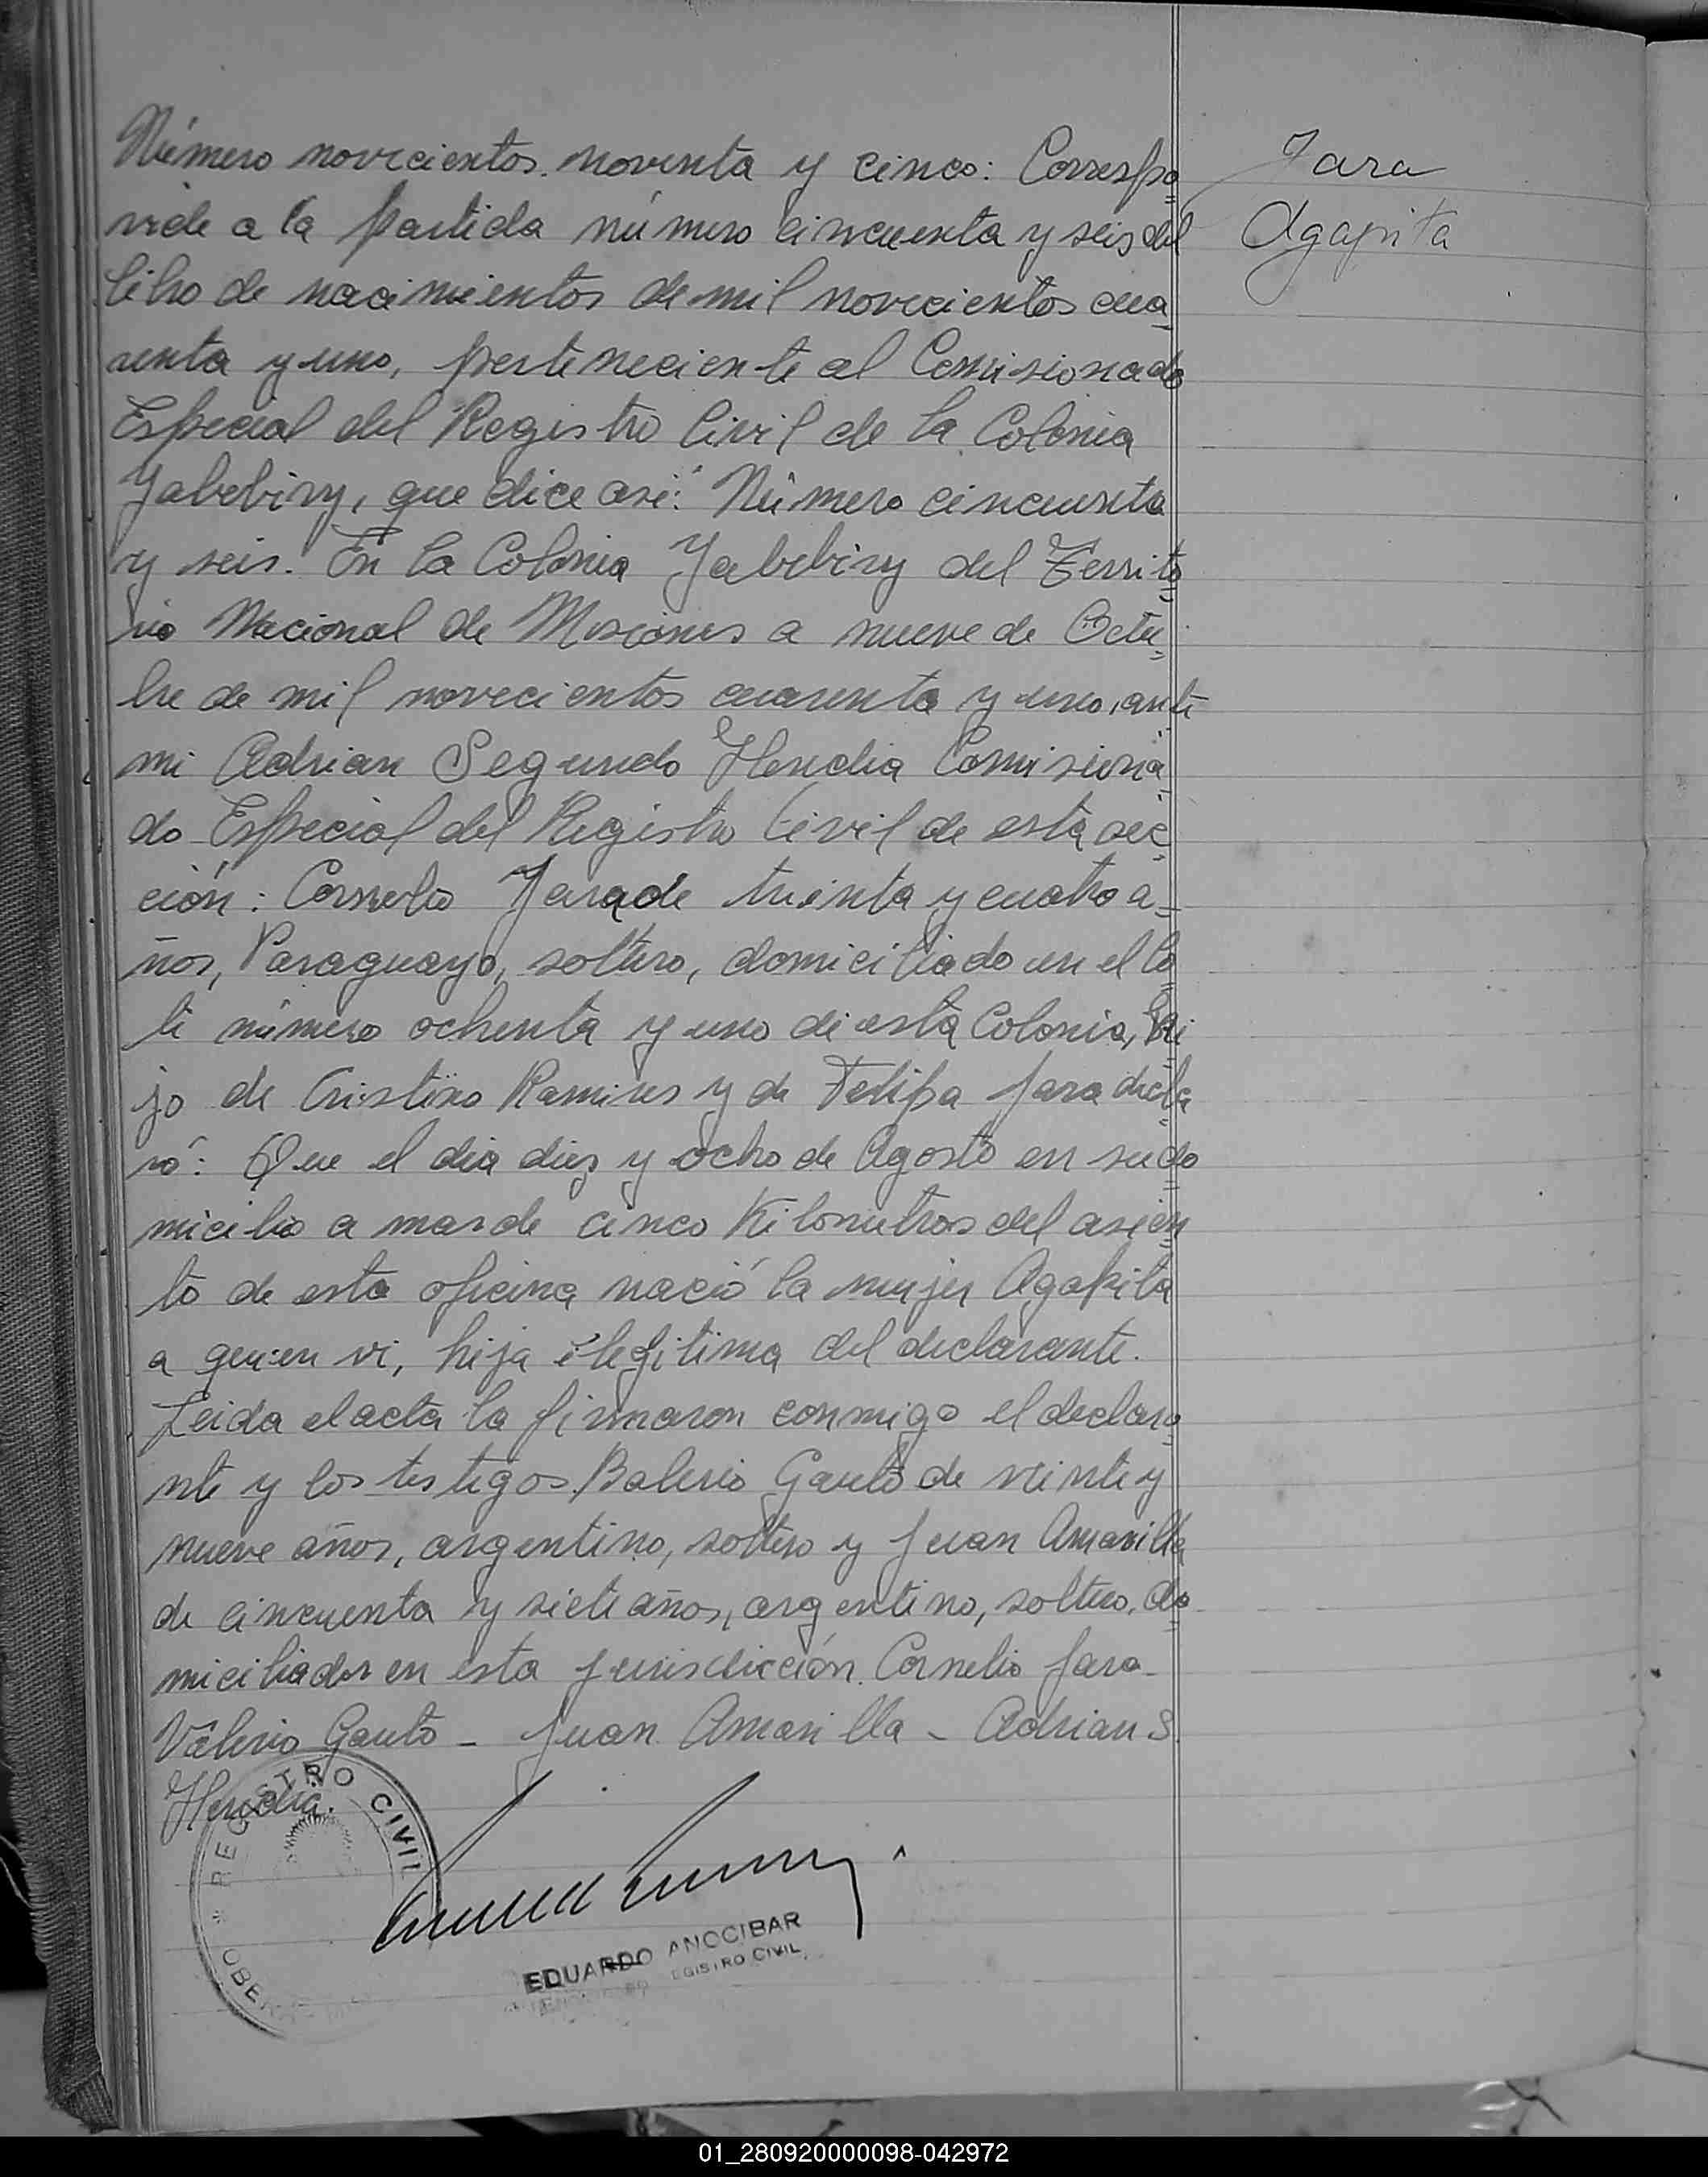 Número novecientos noventa y cinco: Correspo
Jara
nde a la partida número cincuenta y seis del
Agapita
libro de nacimientos de mil novecientos cua
renta y uno, perteneciente al Comisionado
Especial del Registro Civil de la Colonia
Yabebiry, que dice así: Número cincuenta
y seis. En la Colonia Yabebiry del Territo
rio Nacional de Misiones a nueve de Octu
bre de mil novecientos cuarenta y uno, ante
mi Adrian Segundo Heredia Comisiona
do Especial del Registro Civil de esta sec
ción: Cornelio Jara de treinta y cuatro a
ños, Paraguayo, soltero, domiciliado en el lo
te número ochenta y uno de esta Colonia, hi
jo de Cristino Ramires y de Felipa Jara decla
ró: Que el dia diez y ocho de Agosto en su do
micilio a mas de cinco Kilometros del asien
to de esta oficina nació la mujer Agapita
a quien vi, hija ilegitima del declarante.
Leida el acta la firmaron conmigo el declara
nte y los testigos Balerio Gauto de veinte y
nueve años, argentino, soltero y Juan Amarilla
de cincuenta y siete años, argentino, soltero, do
miciliados en esta jurisdicción. Cornelio Jara
Valerio Gauto - Juan Amarilla - Adrian S.
Heredia.
REGISTRO CIVIL
OBE
EDUARDO ANOCIBAR
REGISTRO CIVIL
01_280920000098-042972